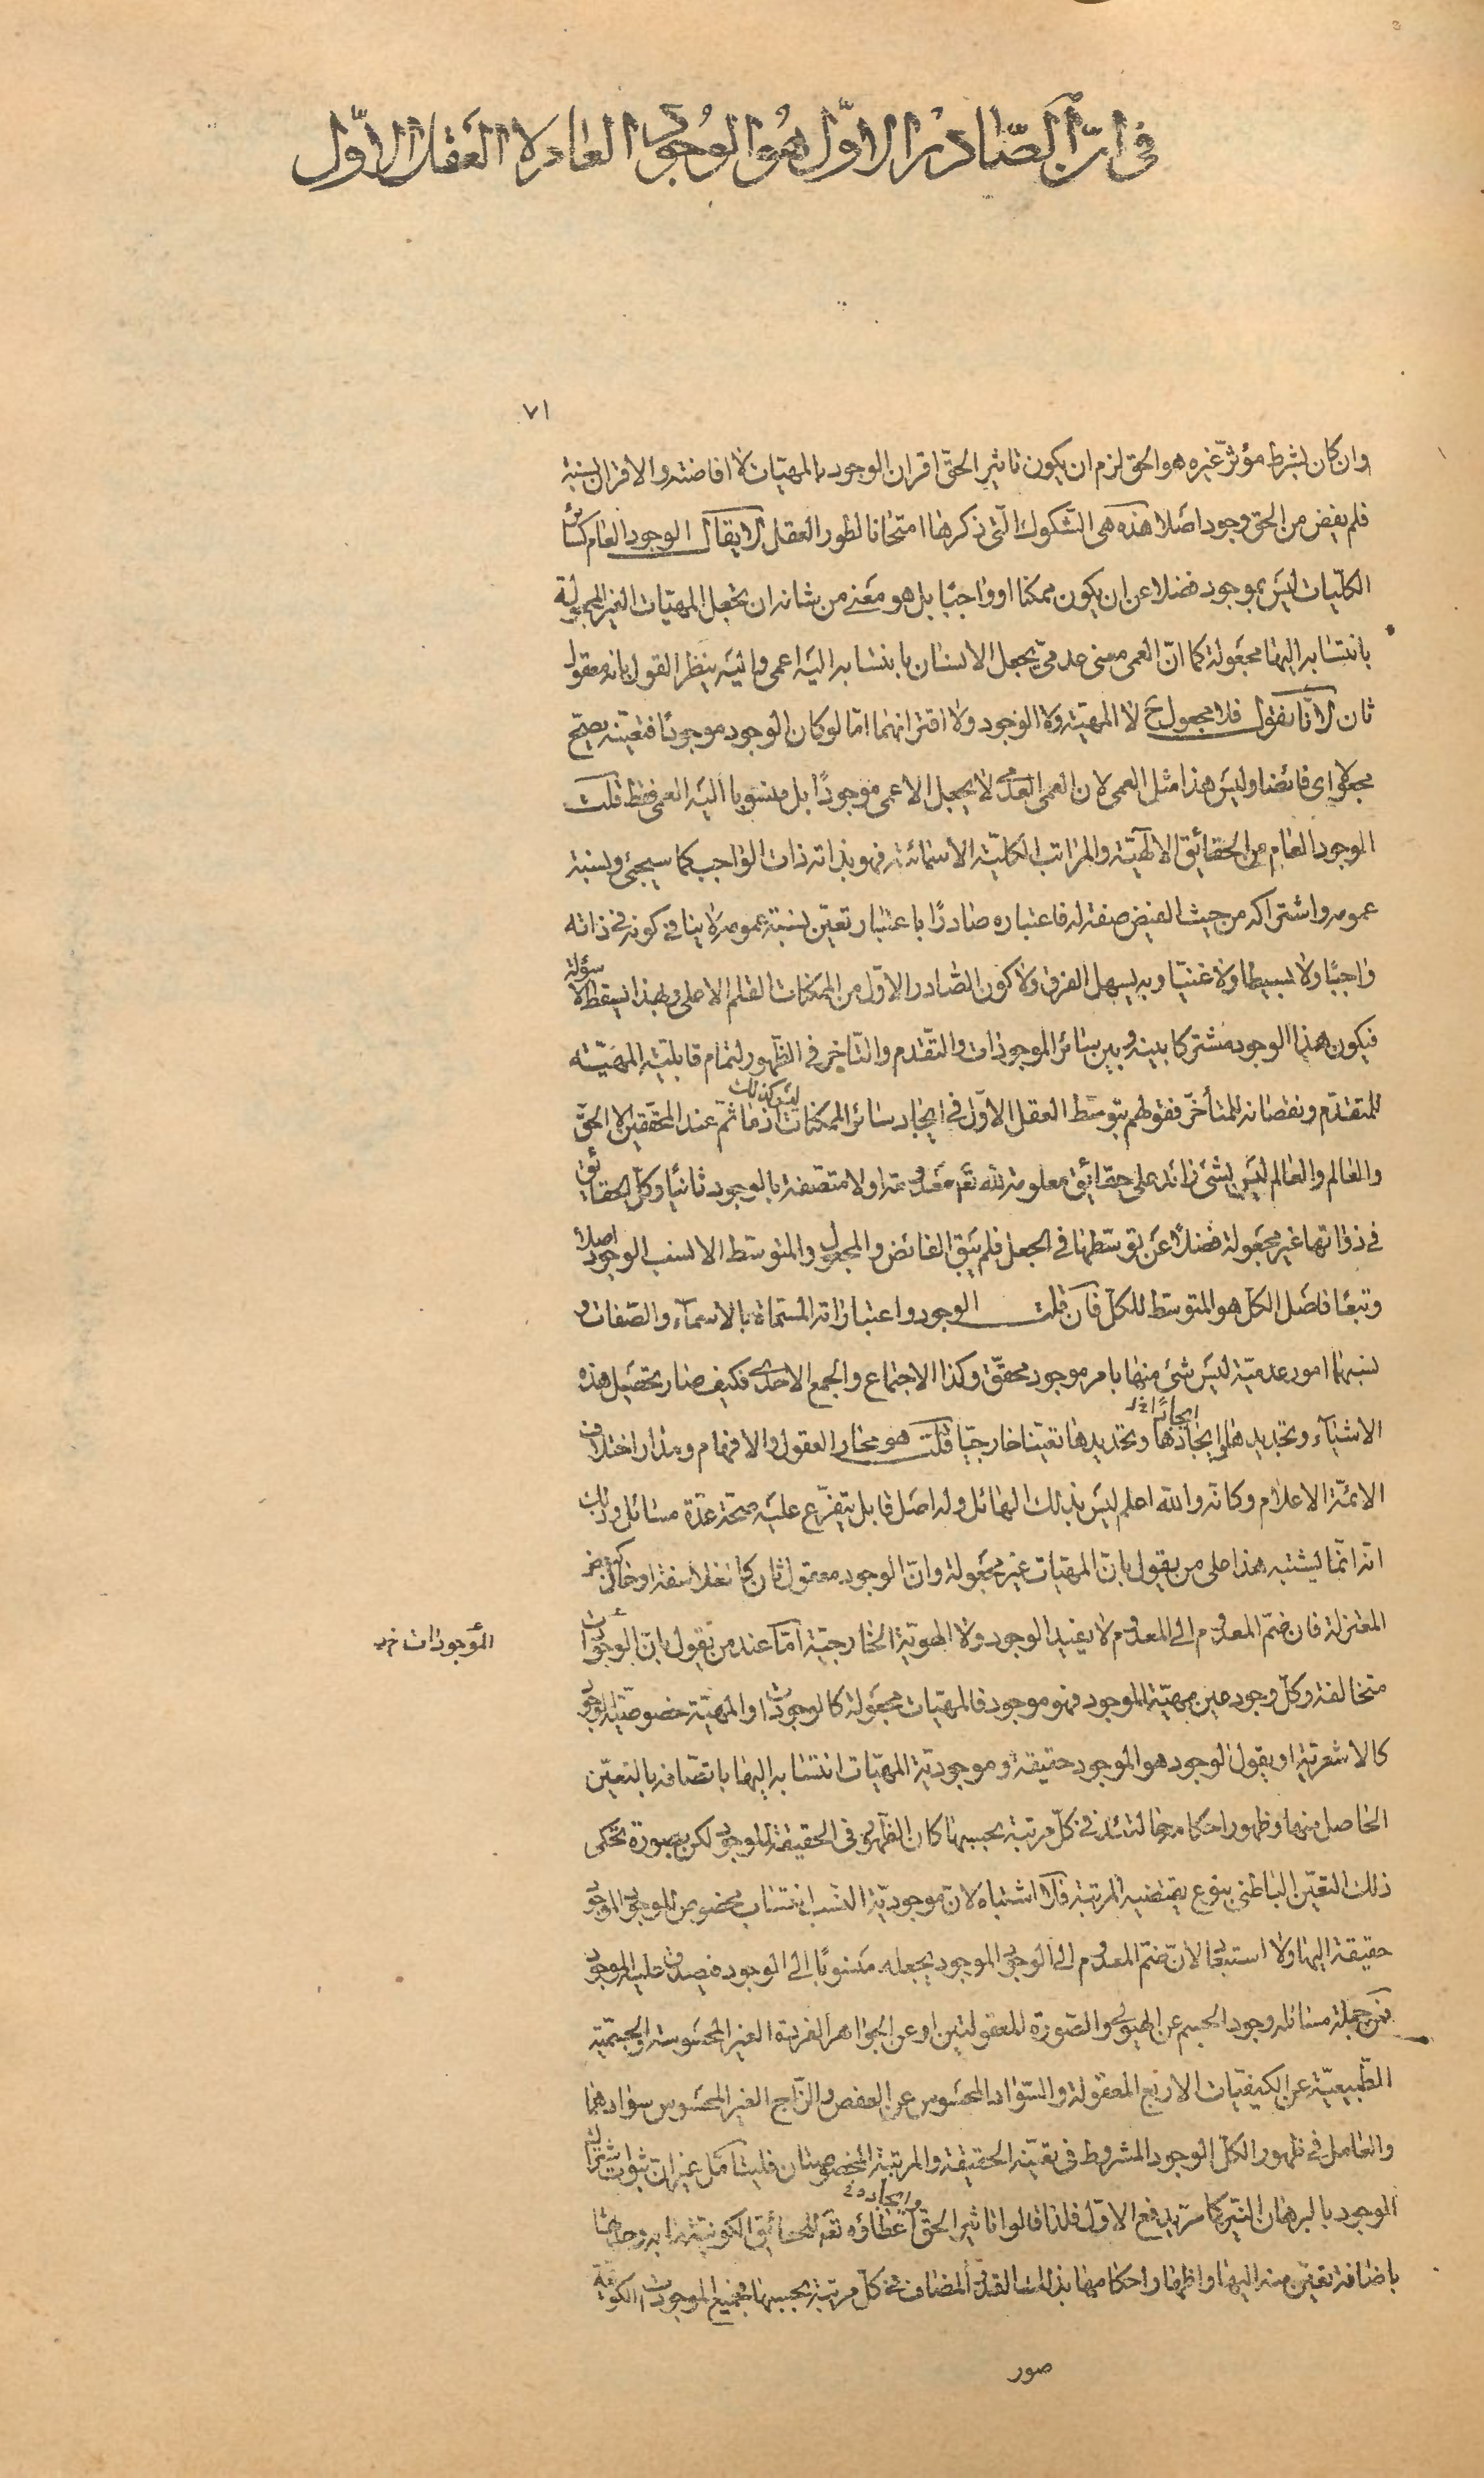 في ان الصادر الاول هو الوجود العام لا العقل الاول
٧١
وان كان بشرط مؤثر غيره هو الحق لزم ان يكون تاثير الحق اقران الوجود بالمهيات لا افاضته والاقران نسبة
فلم يفض من الحق وجود اصلا هذه هى الشكوك التى ذكرها امتحانا لطور العقل لا يقال الوجود العام كسائر
الكليات ليس بموجود فضلا عن ان يكون ممكنا او واجبا بل هو معنى من شانه ان يجعل المهيات الغير المجعولة
بانتسابه اليها مجعولة كما ان العمى معنى عدمى يجعل الانسان بانتسابه اليه اعمى واليه ينظر القول بانه معقول
ثان لانا نقول فلا مجعول ح لا المهية ولا الوجود ولا اقترانهما اما لو كان الوجود موجودا فتعينه يصح
مجعولا اى فائضا وليس هذا مثل العمى لان العمى العدمى لا يجعل الاعمى موجودا بل منسوبا اليه العمى فقط قلت
الوجود العام من الحقائق الالهية والمراتب الكلية الاسمائية فهو بذاته ذات الواجب كما سيجئ ونسبة
عمومه واشتراكه من حيث الفيض صفة له فاعتباره صادرا باعتبار تعين نسبة عمومه لا ينافى كونه فى ذاته
واجبا ولا بسيطا ولا غنيا وبه يسهل الفرق ولا كون الصادر الاول من الممكنات القلم الاعلى وبهذا يسقط الاسؤلة
فيكون هذا الوجود مشتركا بينه وبين سائر الموجودات والتقدم والتاخر فى الظهور لتمام قابلية المهية
المتقدم ونقصانه للمتأخر فقولهم بتوسط العقل الاول فى ايجاد سائر الممكنات ليس كذلك اذ ما ثم عند المحققين الا الحق
والعالم والعالم ليس بشئ زائد على حقائق معلومة لله تعم معدومة اولا متصفة بالوجود ثانيا وكل الحقائق
فى ذواتها غير مجعولة فضلا عن توسطها فى الجعل فلم يبق الفائض والمجعول والمتوسط الا لنسب الوجود اصلا
وتبعا فاصل الكل هو المتوسط للكل فان قلت الوجود واعتباراته المسماة بالاسماء والصفات و
نسبها امور عدمية ليس شئ منها بامر موجود محقق وكذا الاجتماع والجمع الاحدى فكيف صار تحصيل هذه
الاشياء وتجديدها ايجادها ايجادا خ وتحديدها تعينا خارجيا قلت هو محار العقول والافهام ومدار اختلاف
الائمة الاعلام وكانه والله اعلم ليس بذلك الهائل وله اصل قابل يتفرع عليه صحة عدة مسائل وذلك
انه انما يشتبه هذا على من يقول بان المهيات غير مجعولة وان الوجود معقول ثان كالفلاسفة او
المعتزلة فان ضم المعدوم الى المعدوم لا يفيد الوجود ولا الهوية الخارجية اما عند من يقول بان الوجودات
الموجودات خ
متخالفة وكل وجود عين مهية الموجود فهو موجود فالمهيات مجعولة كالوجودات او المهية خصوصية الوجود
كالاشعرية او يقول الوجود هو الموجود حقيقة وموجودية المهيات انتسابه اليها باتصافه بالتعين
الحاصل منها وظهور احكامه فى كل مرتبة بحسبها كان الظهور فى الحقيقة للوجود لكن بصورة تحكى
ذلك التعين الباطنى بنوع يقتضيه المرتبة فلا اشتباه لان موجودية النسب انتساب مخصوص للوجود الموجود
حقيقة اليها ولا استبعاد لان ضم المعدوم الى الوجود الموجود يجعله منسوبا الى الوجود فيصدق عليه الموجود
فمن جملة مسائله وجود الجسم عن الهيولى والصورة المعقولتين او عن الجواهر الفردة الغير المحسوسة والجسمية
الطبيعية عن الكيفيات الاربع المعقولة والسواد المحسوس عن العفص والزاج الغير المحسوس سوادهما
والعامل فى ظهور الكل الوجود المشروط فى تعينه الحقيقة والمرتبة المخصوصتان فليتامل غير ان ثبوت اشتراك
الوجود بالبرهان النير كما مر يدفع الاول فلذا قالوا تاثير الحق وايجاده خ اعطاؤه تعم للحقائق الكونية
باضافة تعين منه اليها واظهار احكامها بذلك القدر المضاف فى كل مرتبة بحسبها فجميع الموجودات الكونية
صور